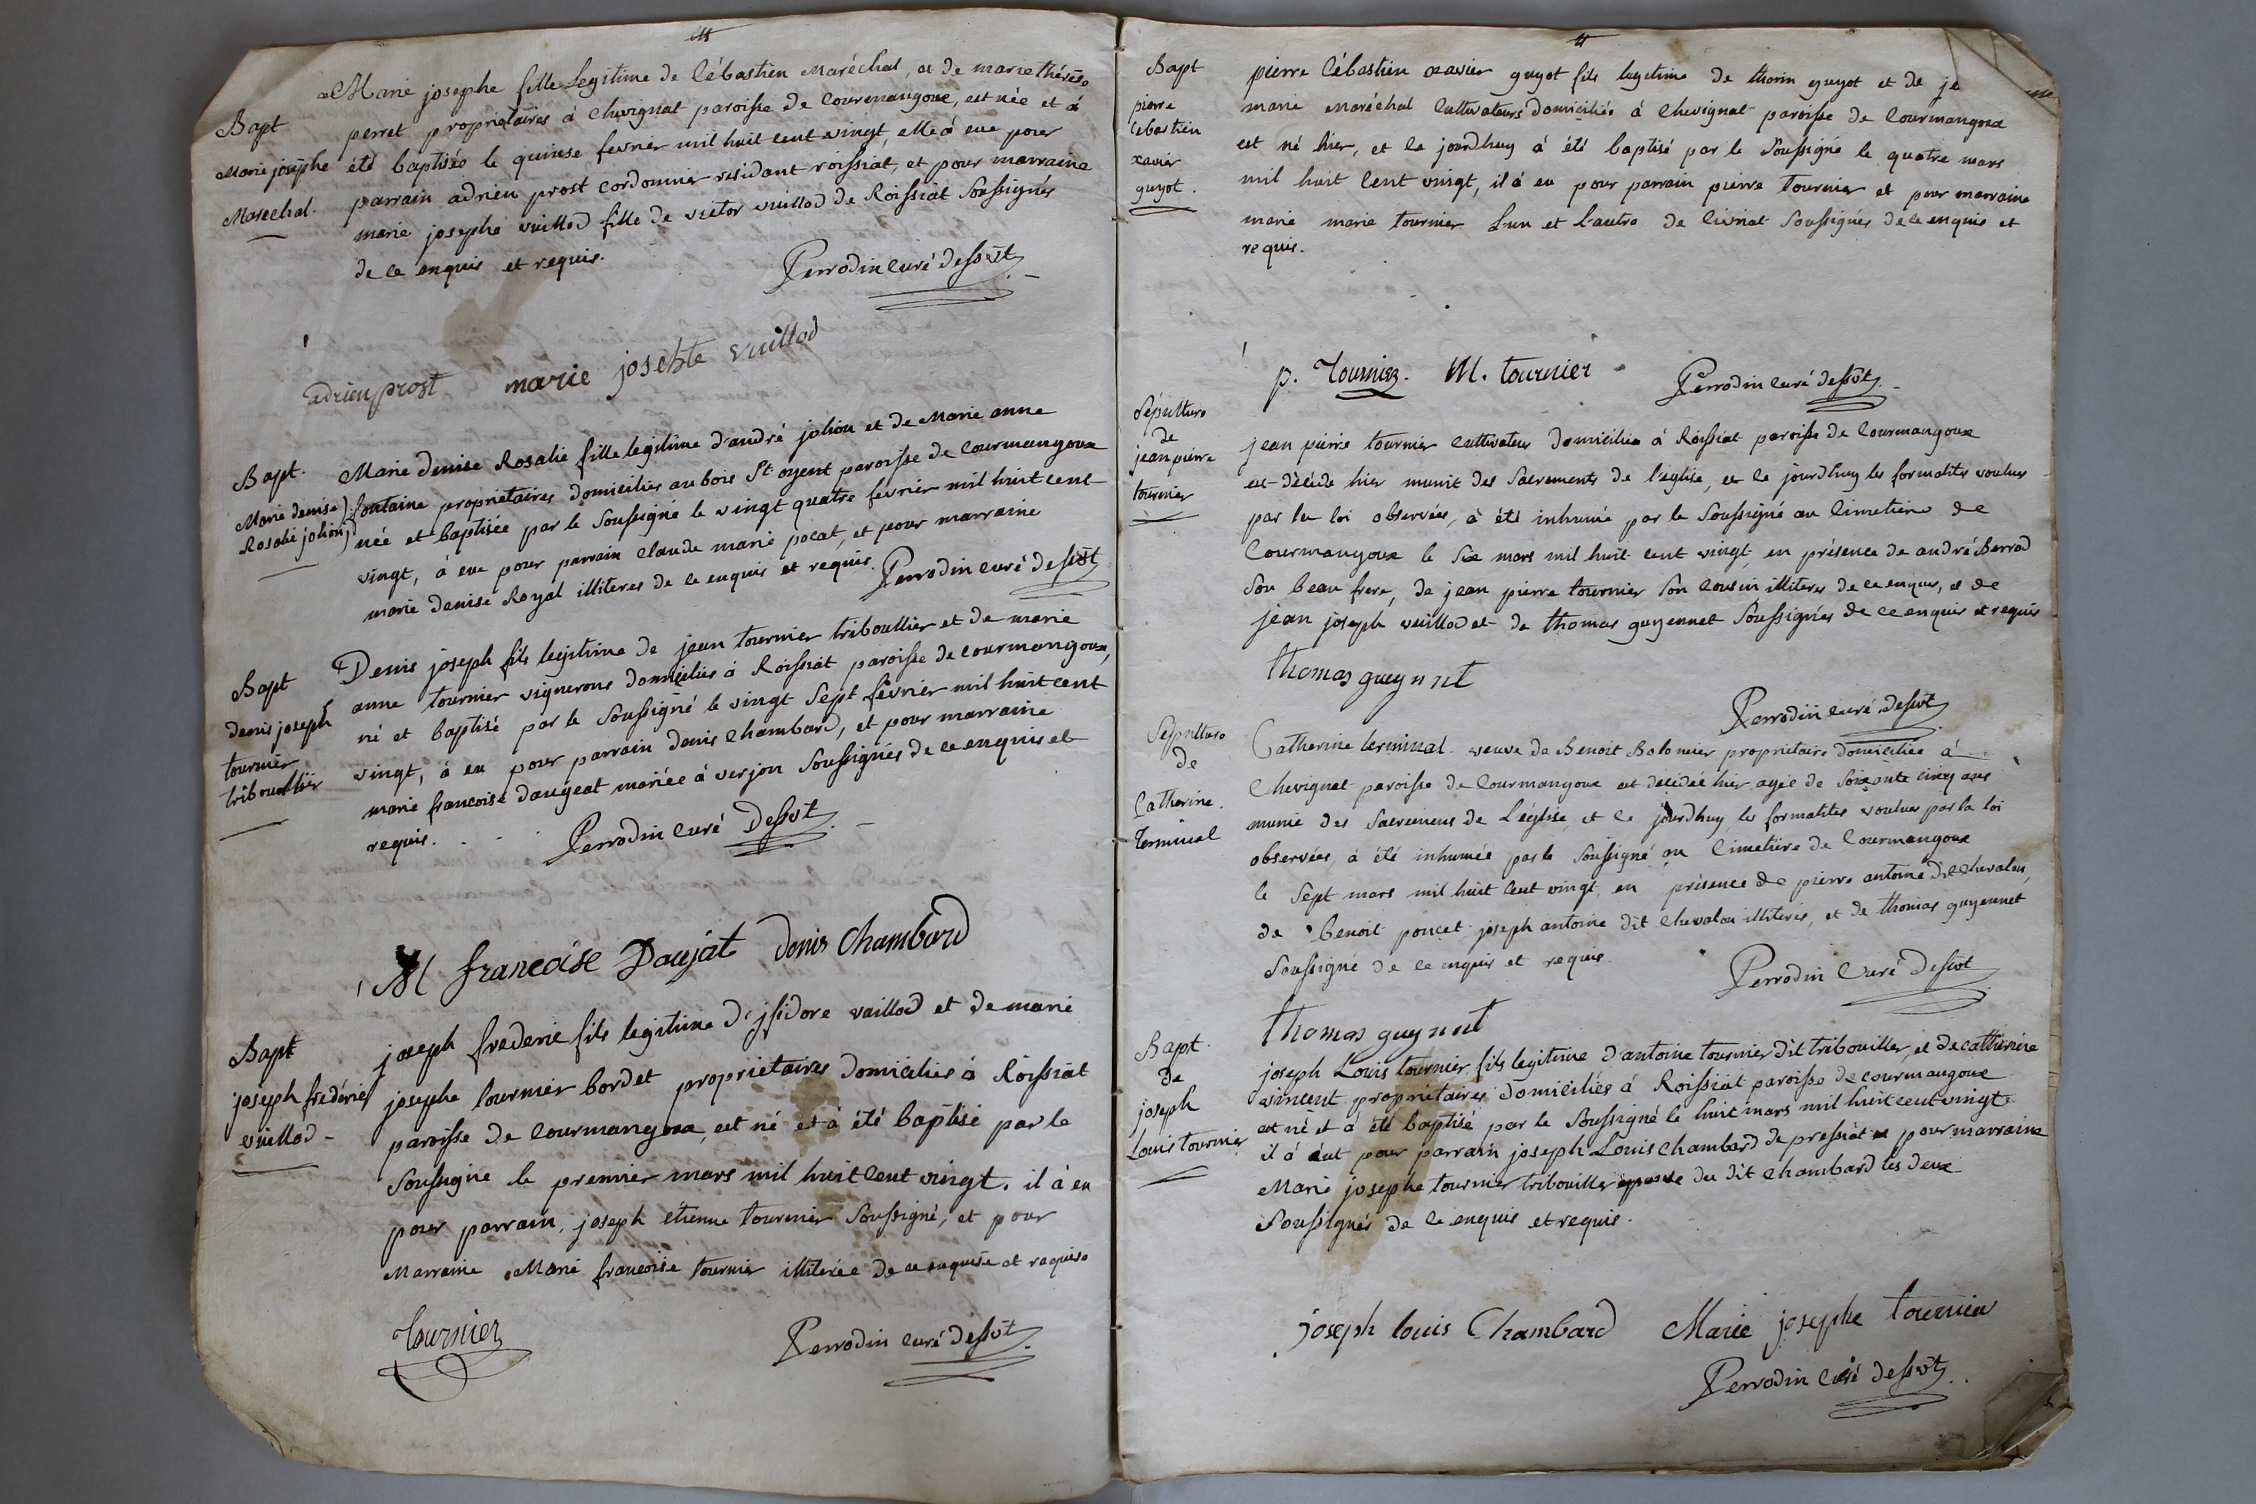 Bapt
Marie josephe
Marechal.
Marie josephe fille Legitime de Cébastien Maréchal, et de marie thérèse
perret proprietaires à chevignat paroisse de Courmangoux, est née et à
été baptisée le quinse fevrier mil huit cent vingt, elle à eue pour
parrain adrien prost cordonnier residant roissiat, et pour marraine
marie josephe vuillod fille de victor vuillod de Roissiat Soussignés
de ce enquis et requis.
Perrodin curé dessvt
adrien prost marie josephte vuillod
Bapt.
Marie denise
Rosalie jolion
Marie denise Rosalie fille legitime d'andré jolion et de Marie anne
fontaine proprietaires domiciliés au bois St oyent paroisse de courmangoux
née et baptisée par le Soussigné le vingt quatre fevrier mil huit cent
vingt, à eue pour parrain claude marie pocat, et pour marraine
marie denise Royal illiteres de ce enquis et requis. Perrodin curé dessvt
Bapt
denis joseph
tournier
tribouillier
Denis joseph fils legitime de jean tournier triboullier et de marie
anne tournier vignerons domiciliés à Roissiat paroisse de courmangoux,
né et baptisé par le Soussigné le vingt Sept février mil huit cent
vingt, à eu pour parrain denis chambard, et pour marraine
marie francoise daugeat mariée à verjon Soussignés de ce enquis et
requis.
Perrodin curé Dessvt
M francoise Daujat denis Chambard
Bapt
joseph fréderic
vuillod
joseph frederic fils legitime d'isidore vuillod et de marie
josephe tournier bordet propriétaires domiciliés à Roissiat
paroisse de Courmangoux, est né et à été baptisé par le
Soussigné le premier mars mil huit Cent vingt. il à eu
pour parrain, joseph etienne tournier Soussigné, et pour
Marraine Marie francoise tournier illiterée de ce enquise et requise
Tournier
Perrodin curé dessvt
Bapt
pierre
cebastien
xavier
guyot.
pierre Cébastien xavier guyot fils legitime de thorin guyot et de je
marie maréchal Cultivateurs domiciliés à Chevignat paroisse de Courmangoux
est né hier, et le jourdhuy à été baptisé par le Soussigné le quatre mars
mil huit Cent vingt, il à eu pour parrain pierre tournier et pour marraine
marie marie tournier L'un et l'autre de Civriat Soussignés de ce enquis et
requis.
p. Tournier. M. tournier
Perrodin curé dessvt
Sépulture
de
jean pierre
tournier
jean pierre tournier Cultivateur domicilié à Roissiat paroisse de Courmangoux
est décédé hier munit des Sacrements de l'eglise, et le jourdhuy les formalités voulues
par la loi observées, à été inhumé par le Soussigné au Cimetière de
Courmangoux le Six mars mil huit cent vingt, en présence de andré Berrod
Son beau frere, de jean pierre tournier Son cousin illiteres de ce enquis, et de
jean joseph vuillod et de thomas guyennet Soussignés de ce enquis et requis
thomas gueynnet
Perrodin curé dessvt
Sepulture
de
Catherine
Terminal
Catherine terminal veuve de Benoit Bolomier proprietaire domiciliée à
Chevignat paroisse de Courmangoux est decédée hier agée de Soixante cinq ans
munie des Sacremens de L'église, et le jourdhuy les formalités voulues par la loi
observées, à été inhumée par le Soussigné au Cimetière de Courmangoux
le Sept mars mil huit Cent vingt en présence de pierre antoine dit chevalon,
de Benoit poncet joseph antoine dit Chevalon illiterés, et de thomas guyennet
Soussigné de ce enquis et requis.
Perrodin Curé dessvt
thomas gueynnet
Bapt.
de
joseph
Louis tournier
joseph Louis tournier fils legitime d'antoine tournier dit tribouiller, et de catherine
vincent propriétaires domiciliés à Roissiat paroisse de courmangoux
est né et à été baptisé par le Soussigné le huit mars mil huit cent vingt.
il à eut pour parrain joseph Louis Chambard de pressiat et pour marraine
Marie josephe tournier tribouiller epouse du dit chambard les deux
Soussignés de ce enquis et requis.
joseph louis Chambard Marie josephe tournier
Perrodin Curé dessvt